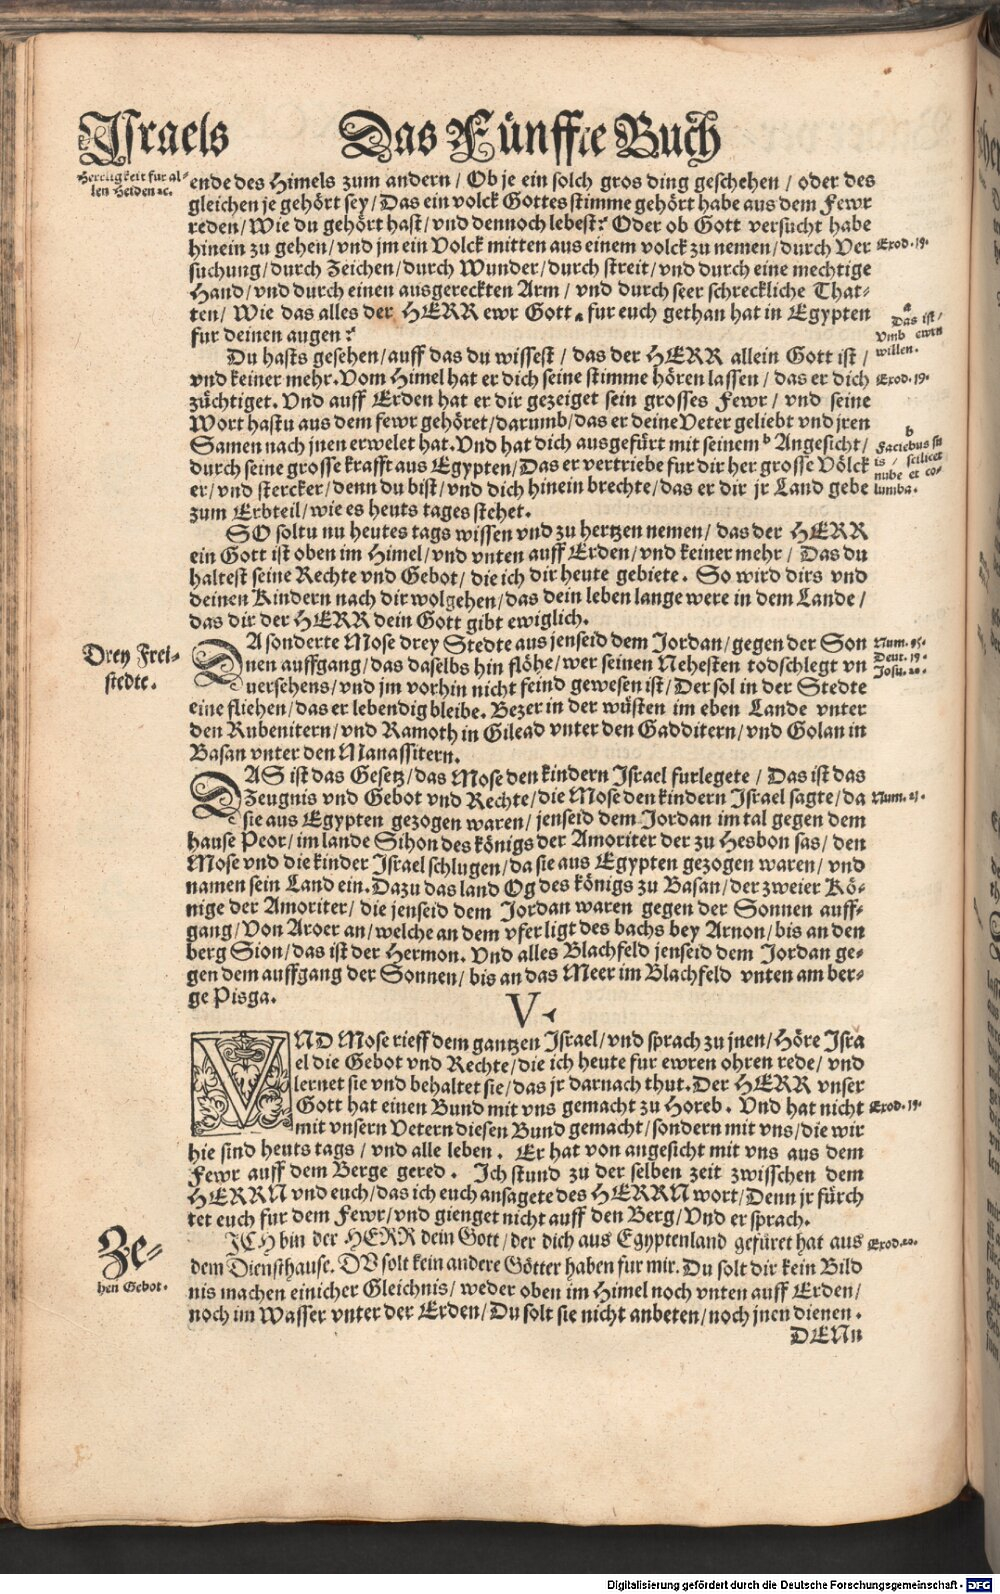 Israels
Das Fünffte Buch
Herrligkeit fur al-
len Heiden ꝛc.
ende des Himels zum andern / Ob je ein solch gros ding geschehen / oder des
gleichen je gehört sey / Das ein volck Gottes stimme gehört habe aus dem Fewr
reden / Wie du gehört hast / vnd dennoch lebest? Oder ob Gott versucht habe
hinein zu gehen / vnd jm ein Volck mitten aus einem volck zu nemen / durch Ver
suchung / durch Zeichen / durch Wunder / durch streit / vnd durch eine mechtige
Hand / vnd durch einen ausgereckten Arm / vnd durch seer schreckliche That-
ten / Wie das alles der HERR ewr Gott a fur euch gethan hat in Egypten
fur deinen augen?
Exod. 19.
a
Das ist /
Vmb ewrn
willen.
Du hasts gesehen / auff das du wissest / das der HERR allein Gott ist /
vnd keiner mehr. Vom Himel hat er dich seine stimme hören lassen / das er dich
züchtiget. Vnd auff Erden hat er dir gezeiget sein grosses Fewr / vnd seine
Wort hastu aus dem fewr gehöret / darumb / das er deine Veter geliebt vnd jren
Samen nach jnen erwelet hat. Vnd hat dich ausgefürt mit seinem b Angesicht /
durch seine grosse krafft aus Egypten / Das er vertriebe fur dir her grosse Völck
er / vnd stercker / denn du bist / vnd dich hinein brechte / das er dir jr Land gebe
zum Erbteil / wie es heuts tages stehet.
Exod. 19.
b
Faciebus su
is / scilicet
nube et co-
lumba.
SO soltu nu heutes tags wissen vnd zu hertzen nemen / das der HERR
ein Gott ist oben im Himel / vnd vnten auff Erden / vnd keiner mehr / Das du
haltest seine Rechte vnd Gebot / die ich dir heute gebiete. So wird dirs vnd
deinen Kindern nach dir wolgehen / das dein leben lange were in dem Lande /
das dir der HERR dein Gott gibt ewiglich.
Drey Frei-
stedte.
DA sonderte Mose drey Stedte aus jenseid dem Jordan / gegen der Son
nen auffgang / das daselbs hin flöhe / wer seinen Nehesten todschlegt vn
uersehens / vnd jm vorhin nicht feind gewesen ist / Der sol in der Stedte
eine fliehen / das er lebendig bleibe. Bezer in der wüsten im eben Lande vnter
den Rubenitern / vnd Ramoth in Gilead vnter den Gadditern / vnd Golan in
Basan vnter den Manassitern.
Num. 35.
Deut. 19.
Josu. 20.
DAS ist das Gesetz / das Mose den kindern Israel furlegete / Das ist das
Zeugnis vnd Gebot vnd Rechte / die Mose den kindern Israel sagte / da
sie aus Egypten gezogen waren / jenseid dem Jordan im tal gegen dem
hause Peor / im lande Sihon des königs der Amoriter der zu Hesbon sas / den
Mose vnd die kinder Israel schlugen / da sie aus Egypten gezogen waren / vnd
namen sein Land ein. Dazu das land Og des königs zu Basan / der zweier Kö-
nige der Amoriter / die jenseid dem Jordan waren gegen der Sonnen auff-
gang / Von Aroer an / welche an dem vfer ligt des bachs bey Arnon / bis an den
berg Sion / das ist der Hermon. Vnd alles Blachfeld jenseid dem Jordan ge-
gen dem auffgang der Sonnen / bis an das Meer im Blachfeld vnten am ber-
ge Pisga.
Num. 21.
V.
VND Mose rieff dem gantzen Israel / vnd sprach zu jnen / Höre Isra
el die Gebot vnd Rechte / die ich heute fur ewren ohren rede / vnd
lernet sie vnd behaltet sie / das jr darnach thut. Der HERR vnser
Gott hat einen Bund mit vns gemacht zu Horeb. Vnd hat nicht
mit vnsern Vetern diesen Bund gemacht / sondern mit vns / die wir
hie sind heuts tags / vnd alle leben. Er hat von angesicht mit vns aus dem
Fewr auff dem Berge gered. Ich stund zu der selben zeit zwisschen dem
HERRN vnd euch / das ich euch ansagete des HERRN wort / Denn jr fürch
tet euch fur dem Fewr / vnd gienget nicht auff den Berg / Vnd er sprach.
Exod. 19.
Ze-
hen Gebot.
ICH bin der HERR dein Gott / der dich aus Egyptenland gefüret hat aus
dem Diensthause. DV solt kein andere Götter haben fur mir. Du solt dir kein Bild
nis machen einicher Gleichnis / weder oben im Himel noch vnten auff Erden /
noch im Wasser vnter der Erden / Du solt sie nicht anbeten / noch jnen dienen.
Exod. 20.
DENn
Digitalisierung gefördert durch die Deutsche Forschungsgemeinschaft - DFG